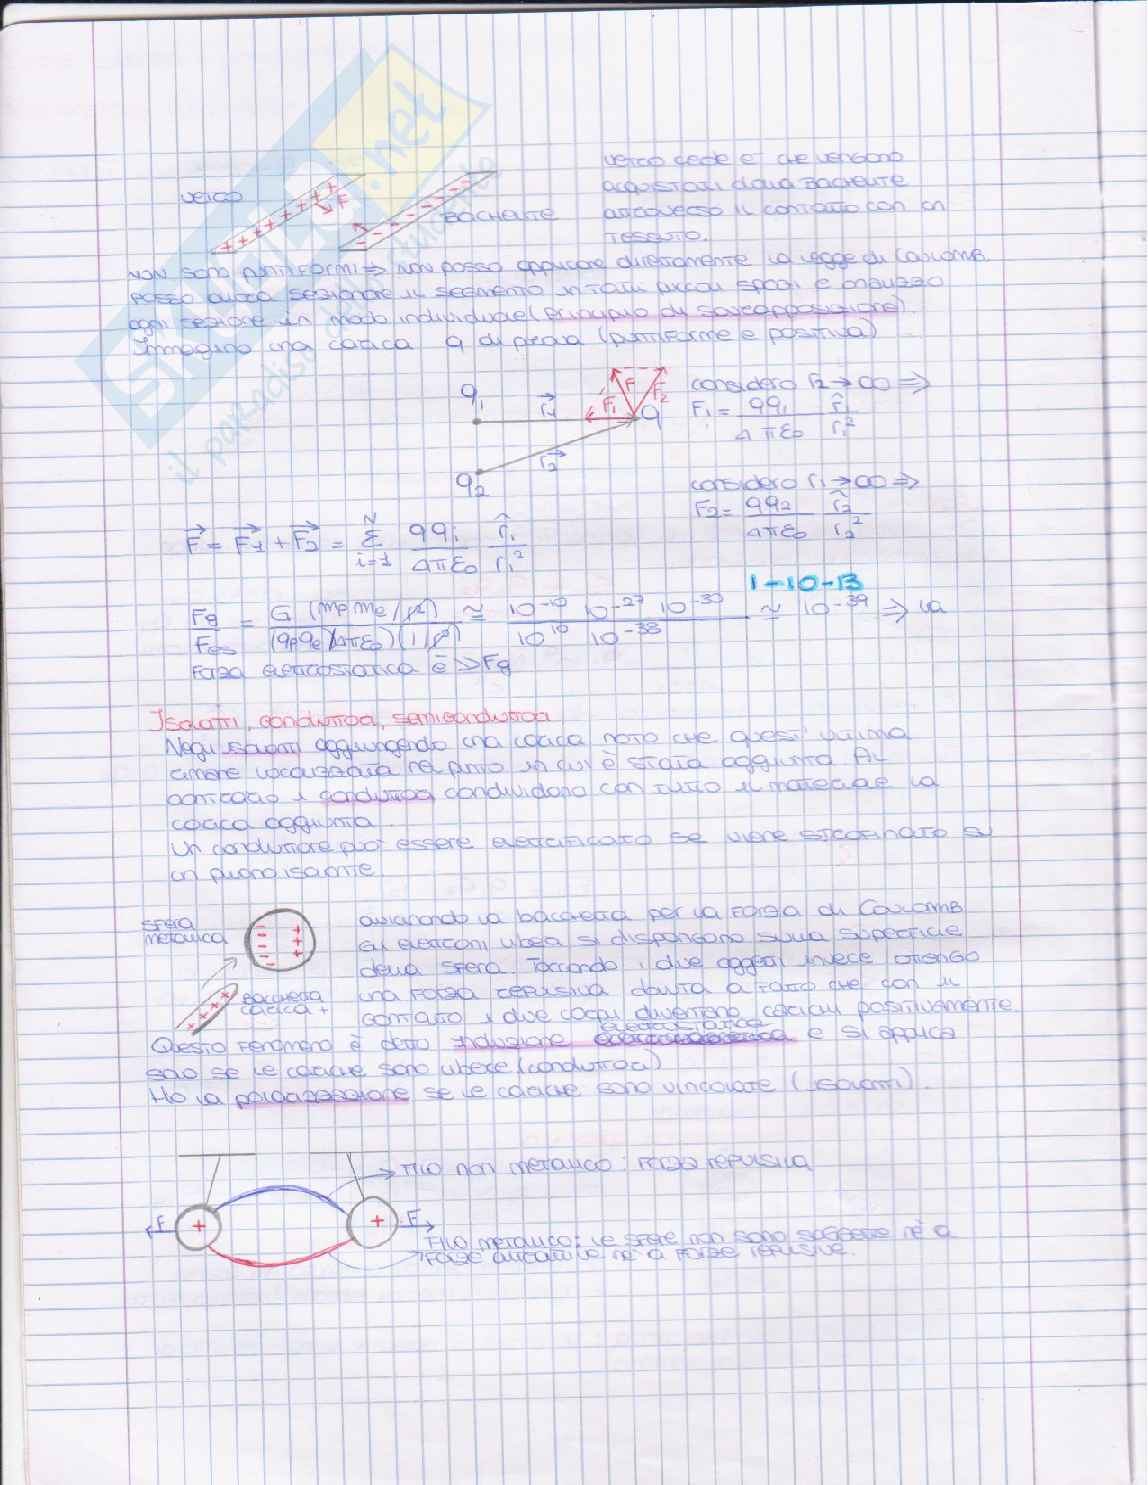 vetro cede e⁻ che vengono
acquistati dalla bacchetta
attraverso il contatto con un
tessuto.
vetro
F
BACHELITE
Non sono puntiformi ⇒ non posso applicare direttamente la legge di Coulomb.
Posso allora sezionare il segmento in tanti piccoli spazi e analizzo
ogni sezione in modo individuale (principio di sovrapposizione).
Immagino una carica q di prova (puntiforme e positiva)
q1 r1 F1 F F2 q
q2 r2
considero r2→∞ ⇒
F1 = qq1/4πε0 r̂1/r1²
considero r1→∞ ⇒
F2 = qq2/4πε0 r̂2/r2²
F = F1 + F2 = Σ i=1 N qqi/4πε0 r̂i/ri²
1-10-13
Fg/Fes = G (mp me/r²)/(qp qe/4πε0)(1/r²) ≃ 10⁻¹⁰ 10⁻²⁷ 10⁻³⁰/10¹⁰ 10⁻³⁸ ≃ 10⁻³⁹ ⇒ la
Forza elettrostatica è >> Fg
Isolanti, conduttori, semiconduttori
Negli isolanti aggiungendo una carica noto che quest'ultima
rimane localizzata nel punto in cui è stata aggiunta. Al
contrario i conduttori condividono con tutto il materiale la
carica aggiunta.
Un conduttore può essere elettrificato se viene strofinato su
un piano isolante
sfera
metallica
bacchetta
carica +
avvicinando la bacchetta per la Forza di Coulomb
gli elettroni liberi si dispongono sulla superficie
della sfera. Toccando i due oggetti invece ottengo
una forza repulsiva dovuta al fatto che con il
contatto i due corpi diventano carichi positivamente.
Questo fenomeno è detto induzione elettrostatica e si applica
solo se le cariche sono libere (conduttori)
Ho la polarizzazione se le cariche sono vincolate (isolanti).
→ Filo non metallico: forza repulsiva
F + + F
Filo metallico: le sfere non sono soggette né a
forze attrattive né a forze repulsive.
SKUOLA.net
il paradiso dello studente